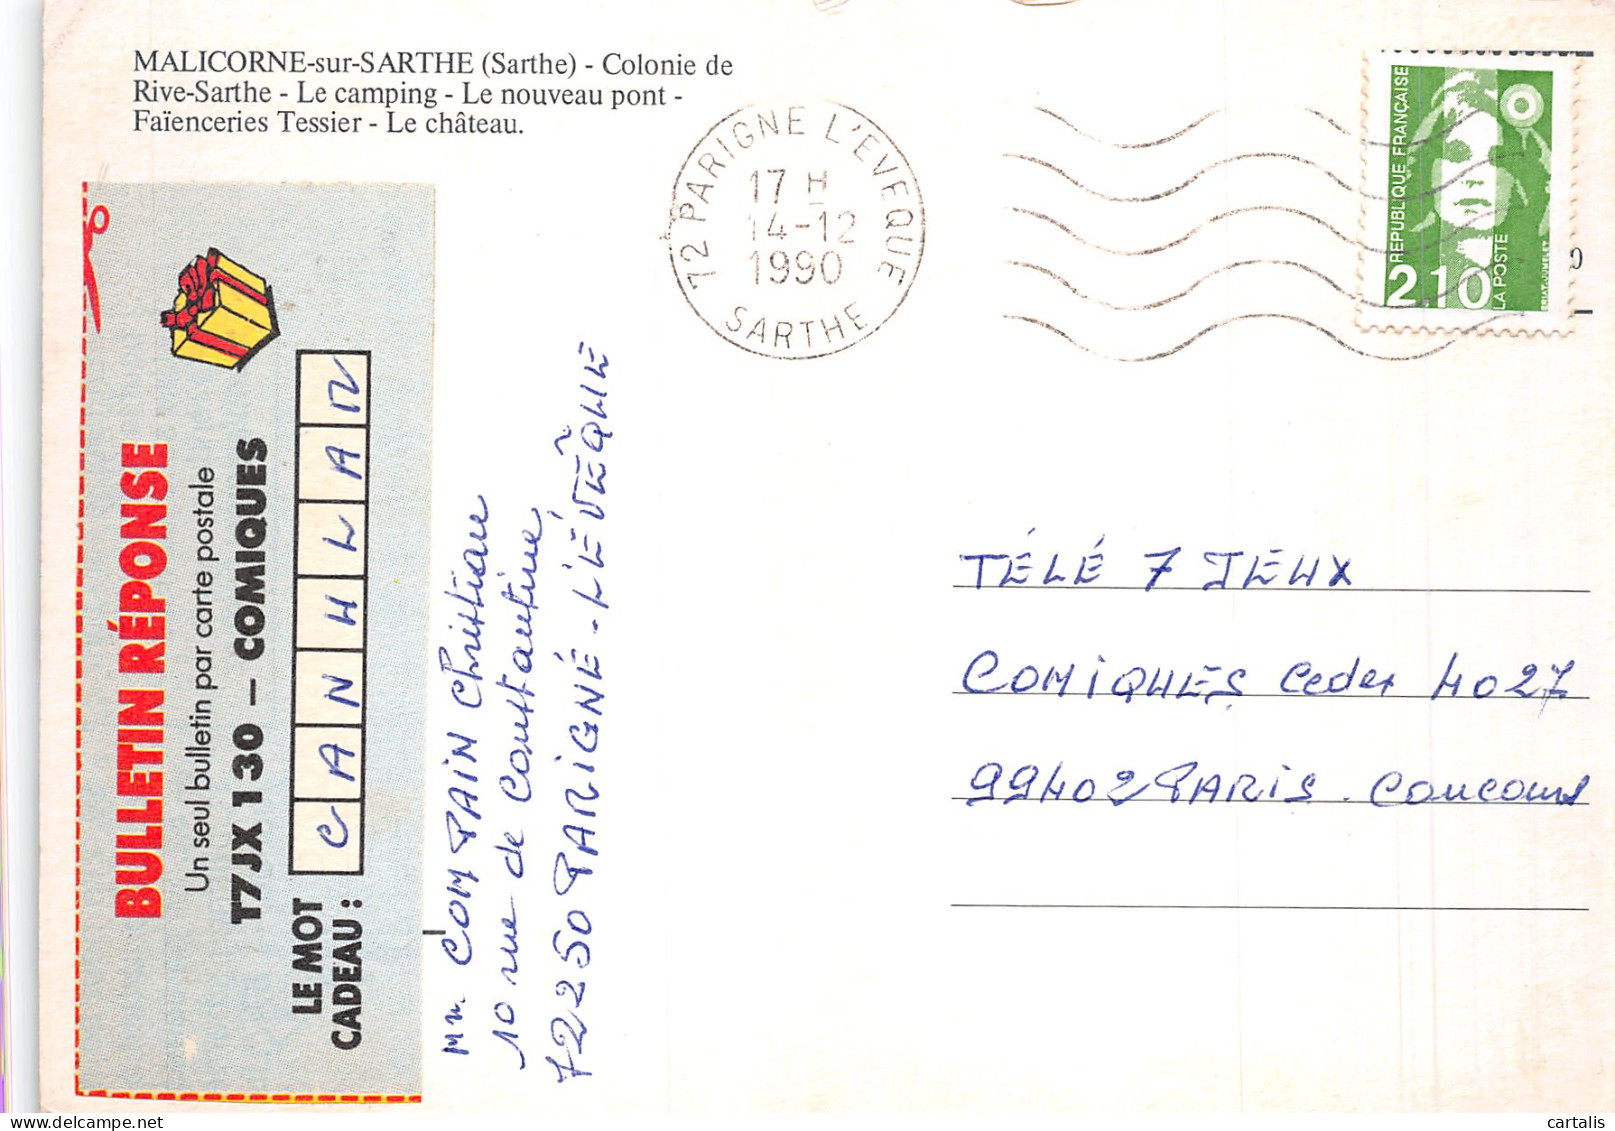 MALICORNE-sur-SARTHE (Sarthe) - Colonie de
Rive-Sarthe - Le camping - Le nouveau pont -
Faïenceries Tessier - Le château.
72 PARIGNE L'EVEQUE
17 H
14-12
1990
SARTHE
REPUBLIQUE FRANÇAISE
2,10
LA POSTE
BRIAT-JUMELET
BULLETIN RÉPONSE
Un seul bulletin par carte postale
T7JX 130 – COMIQUES
LE MOT
CADEAU :
CANHLAR
Mr. COMPAIN Christian
10 rue de Constantine,
72250 PARIGNÉ - L'ÉVÊQUE
TÉLÉ 7 JEUX
COMIQUES Cedex 4027
99402 PARIS. Concours
cartalis